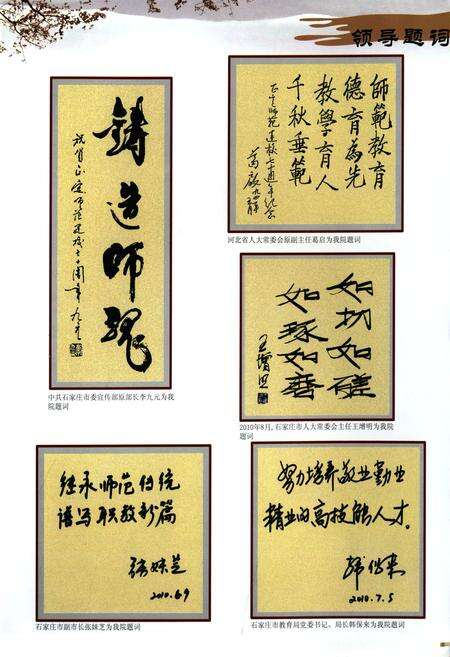 领导题词
鑄造师魂
祝贺正定师范建校七十周年 九元
中共石家庄市委宣传部原部长李九元为我
院题词
師範教育
德育為先
教學育人
千秋垂範
正定师范建校七十週年纪念
葛启
河北省人大常委会原副主任葛启为我院题词
如切如磋
如琢如磨
王增明
2010年8月,石家庄市人大常委会主任王增明为我院
题词
继承师范传统
谱写职教新篇
张妹芝
2010.6.9
石家庄市副市长张妹芝为我院题词
努力培养敬业勤业
精业的高技能人才。
韩保来
2010.7.5
石家庄市教育局党委书记、局长韩保来为我院题词